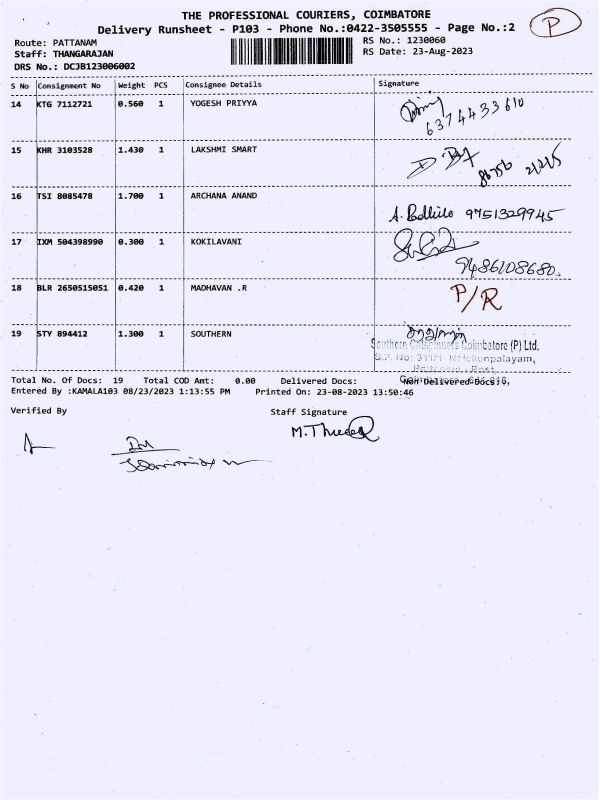 THE PROFESSIONAL COURIERS, COIMBATORE
Delivery Runsheet - P103 - Phone No.:0422-3505555 - Page No.:2
P
Route: PATTANAM
RS No.: 1230060
Staff: THANGARAJAN
RS Date: 23-Aug-2023
DRS No.: DCJB123006002
S No Consignment No Weight PCS Consignee Details Signature
14 KTG 7112721 0.560 1 YOGESH PRIYYA
6374433610
15 KHR 3103528 1.430 1 LAKSHMI SMART
16 TSI 8085478 1.700 1 ARCHANA ANAND
9751329945
17 IXM 504398990 0.300 1 KOKILAVANI
9486108680.
18 BLR 2650515051 0.420 1 MADHAVAN .R P/R
19 STY 894412 1.300 1 SOUTHERN
Southern Coimbatore (P) Ltd.
Total No. Of Docs: 19 Total COD Amt: 0.00 Delivered Docs: Non Delivered Docs:
Entered By :KAMALA103 08/23/2023 1:13:55 PM Printed On: 23-08-2023 13:50:46
Verified By Staff Signature